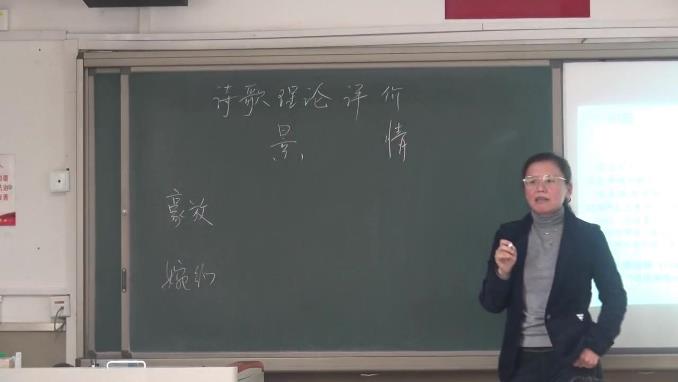 诗歌理论评价
景, 情
豪放
婉约